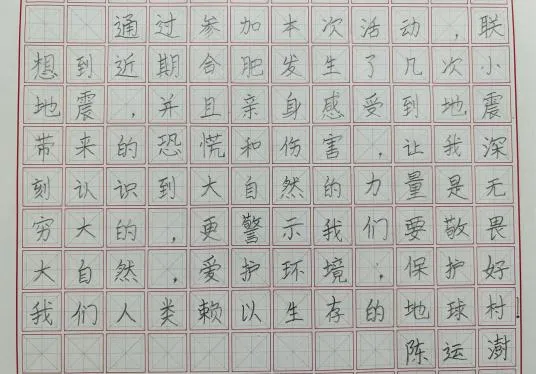 通过参加本次活动，联
想到近期合肥发生了几次小
地震，并且亲身感受到地震
带来的恐慌和伤害，让我深
刻认识到大自然的力量是无
穷大的，更警示我们要敬畏
大自然，爱护环境，保护好
我们人类赖以生存的地球村!
陈运澍